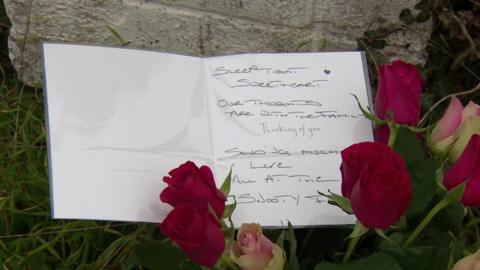 SLEEP TIGHT
SWEETHEART
OUR THOUGHTS
ARE WITH THE FAMILY
Thinking of you
SENDING
LOVE
ALL AT THE